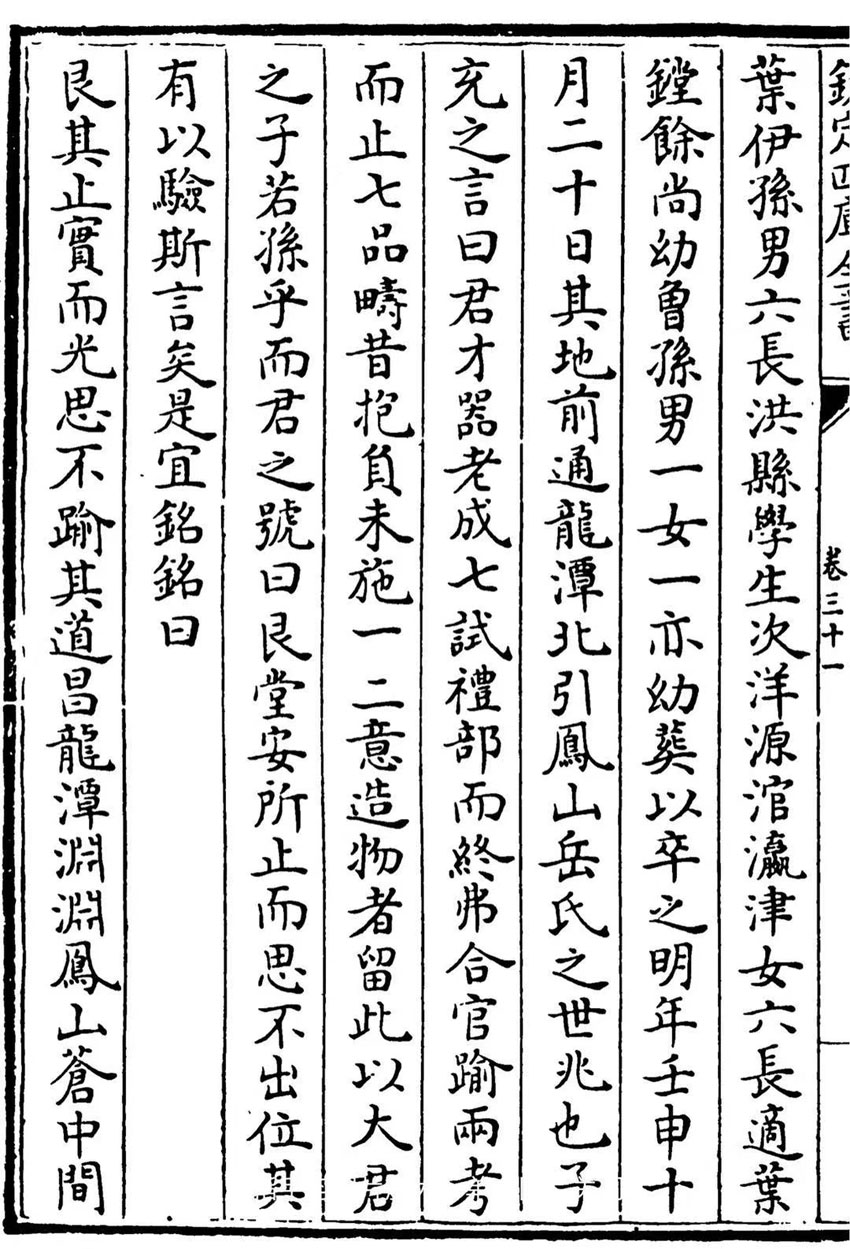 欽定四庫全書
卷三十一
葉伊孫男六長洪縣學生次洋源涫瀛津女六長適葉
鏜餘尚幼曾孫男一女一亦幼葬以卒之明年壬申十
月二十日其地前通龍潭北引鳳山岳氏之世兆也子
充之言曰君才器老成七試禮部而終弗合官踰兩考
而止七品疇昔抱負未施一二意造物者留此以大君
之子若孫乎而君之號曰艮堂安所止而思不出位其
有以驗斯言矣是宜銘銘曰
艮其止實而光思不踰其道昌龍潭淵淵鳳山蒼中間